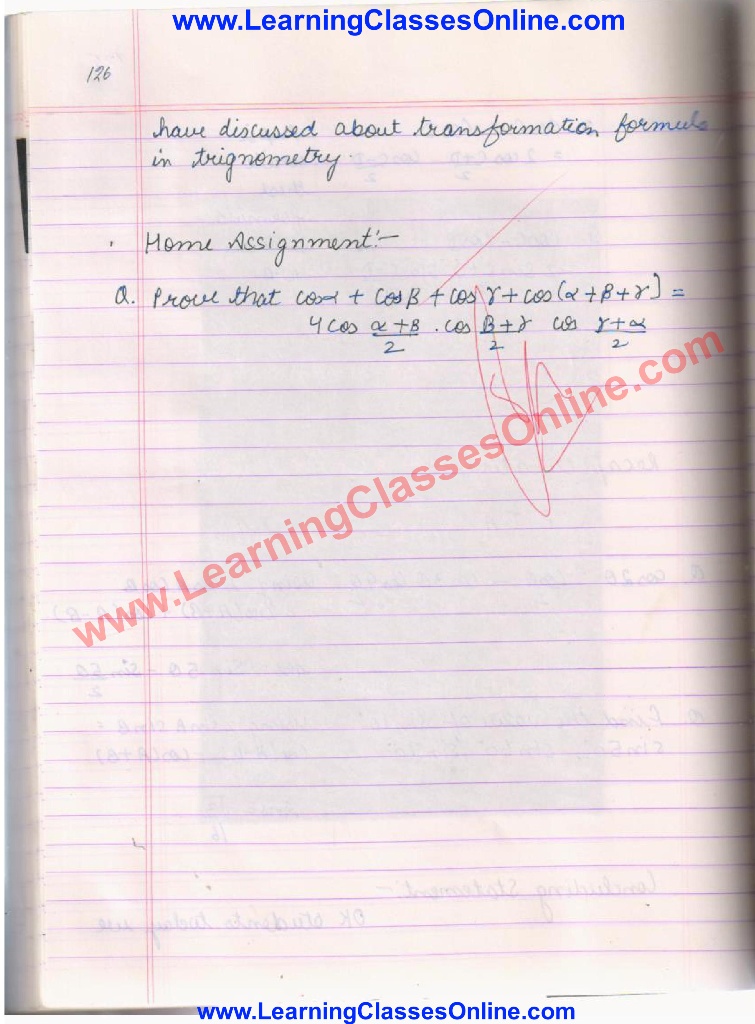 www.LearningClassesOnline.com
126
have discussed about transformation formula
in trignometry.
Home Assignment:-
Q. Prove that cosα + cosβ + cos γ + cos(α+β+γ) =
4 cos α+β/2 . cos β+γ/2 cos γ+α/2
www.LearningClassesOnline.com
Concluding Statement:-
OK students today we
www.LearningClassesOnline.com